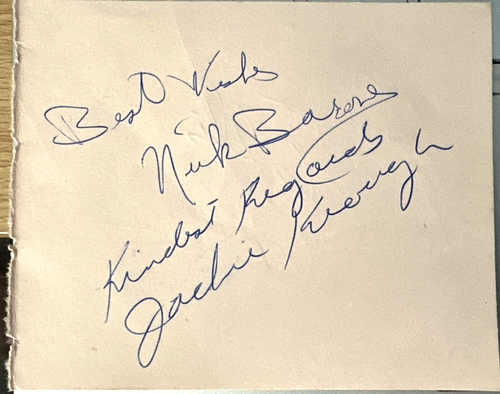 Best Wishes
Nick Barone
Kindest Regards
Jackie Keough